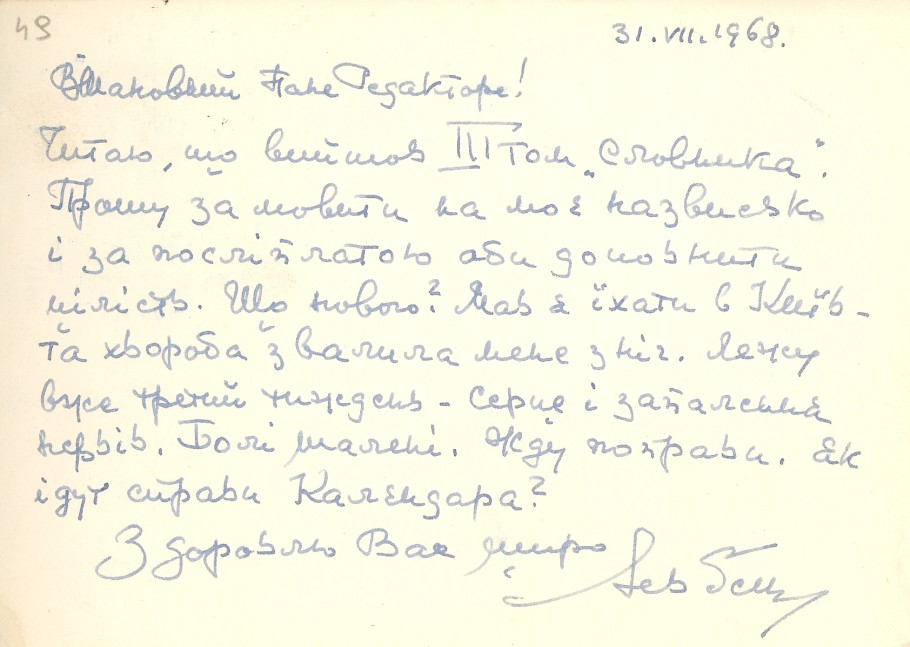 49
31.VII.1968.
Вшановний Пане Редакторе!
Читаю, що вийшов III том „Словника".
Прошу замовити на моє назвисько
і за посліплатою аби доповнити
цілість. Що нового? Мав я їхати в Київ -
та хвороба звалила мене з ніг. Лежу
вже третий тиждень - серце і запалення
нервів. Болі шалені. Жду поправи. Як
ідут справи Календара?
Здоровлю Вас щиро
Лев